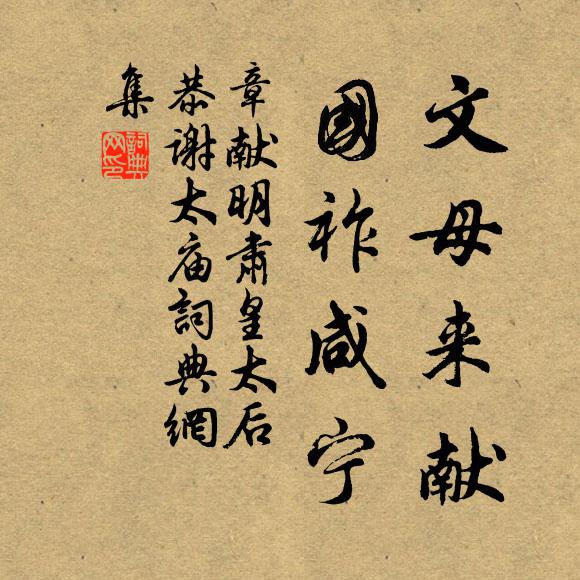 文母来献
國祚咸宁
章献明肅皇太后
恭谢太庙詞典網
集
詞典
网印